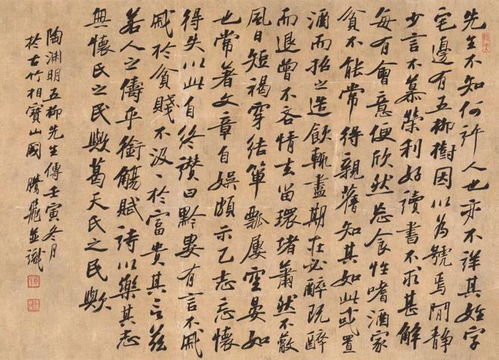 先生不知何許人也亦不詳其姓字
宅邊有五柳樹因以為號焉閒靜
少言不慕榮利好讀書不求甚解
每有會意便欣然忘食性嗜酒家
貧不能常得親舊知其如此或置
酒而招之造飲輒盡期在必醉既醉
而退曾不吝情去留環堵蕭然不蔽
風日短褐穿結簞瓢屢空晏如
也常著文章自娛頗示己志忘懷
得失以此自終贊曰黔婁有言不戚
戚於貧賤不汲々於富貴其言茲
若人之儔乎銜觴賦詩以樂其志
無懷氏之民歟葛天氏之民歟
陶淵明五柳先生傳壬寅冬月
於古竹相寶山國 騰飛並識